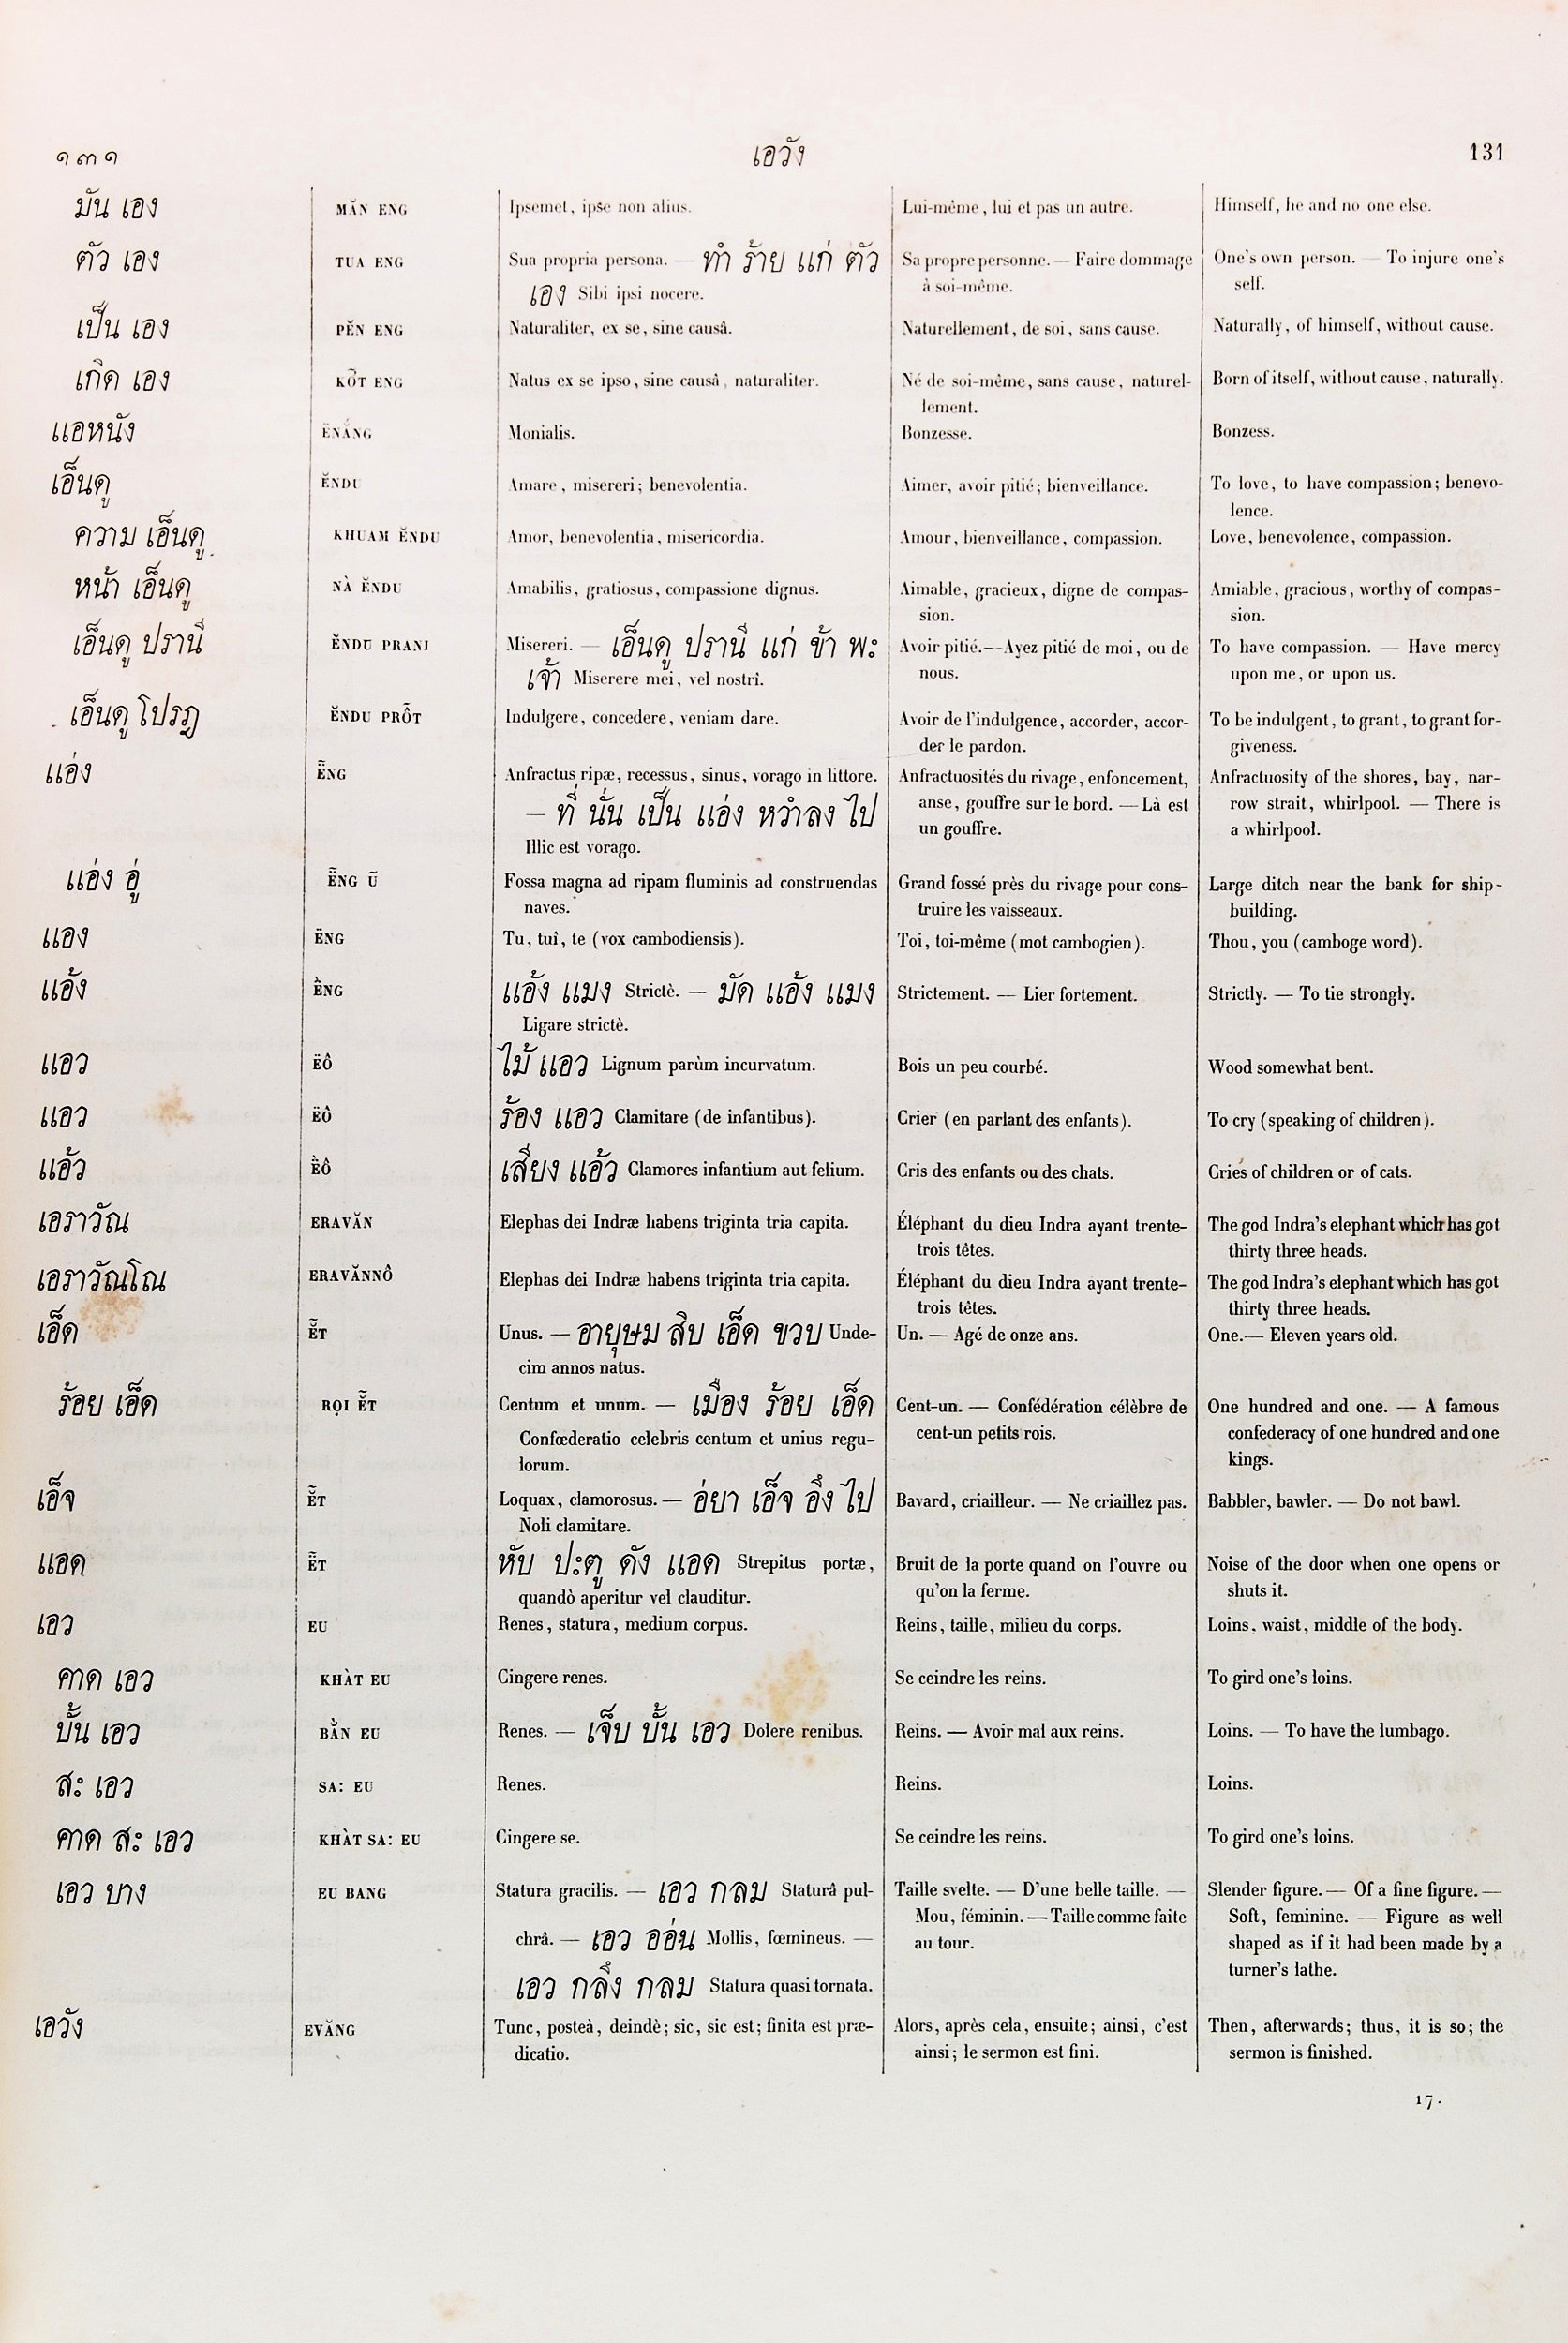 ๑๓๑ เอวัง 131
มัน เอง MĂN ENG Ipsemet, ipse non alius. Lui-même, lui et pas un autre. Himself, he and no one else.
ตัว เอง TUA ENG Sua propria persona. — ทำ ร้าย แก่ ตัว Sa propre personne. — Faire dommage One's own person. — To injure one's
เอง Sibi ipsi nocere. à soi-même. self.
เป็น เอง PĔN ENG Naturaliter, ex se, sine causâ. Naturellement, de soi, sans cause. Naturally, of himself, without cause.
เกิด เอง KÕT ENG Natus ex se ipso, sine causâ, naturaliter. Né de soi-même, sans cause, naturel- Born of itself, without cause, naturally.
lement.
แอหนัง ËNẮNG Monialis. Bonzesse. Bonzess.
เอ็นดู ĔNDU Amare, misereri; benevolentia. Aimer, avoir pitié; bienveillance. To love, to have compassion; benevo-
lence.
ความ เอ็นดู KHUAM ĔNDU Amor, benevolentia, misericordia. Amour, bienveillance, compassion. Love, benevolence, compassion.
หน้า เอ็นดู NÀ ĔNDU Amabilis, gratiosus, compassione dignus. Aimable, gracieux, digne de compas- Amiable, gracious, worthy of compas-
sion. sion.
เอ็นดู ปรานี ĔNDU PRANI Misereri. — เอ็นดู ปรานี แก่ ข้า พะ Avoir pitié.—Ayez pitié de moi, ou de To have compassion. — Have mercy
เจ้า Miserere mei, vel nostrî. nous. upon me, or upon us.
เอ็นดู โปรฎ ĔNDU PRỖT Indulgere, concedere, veniam dare. Avoir de l'indulgence, accorder, accor- To be indulgent, to grant, to grant for-
der le pardon. giveness.
แอ่ง Ë̃NG Anfractus ripæ, recessus, sinus, vorago in littore. Anfractuosités du rivage, enfoncement, Anfractuosity of the shores, bay, nar-
— ที่ นั่น เป็น แอ่ง หวำลง ไป anse, gouffre sur le bord. — Là est row strait, whirlpool. — There is
Illic est vorago. un gouffre. a whirlpool.
แอ่ง อู่ Ë̃NG Ũ Fossa magna ad ripam fluminis ad construendas Grand fossé près du rivage pour cons- Large ditch near the bank for ship-
naves. truire les vaisseaux. building.
แอง ËNG Tu, tuî, te (vox cambodiensis). Toi, toi-même (mot cambogien). Thou, you (camboge word).
แอ้ง Ë̀NG แอ้ง แมง Strictè. — มัด แอ้ง แมง Strictement. — Lier fortement. Strictly. — To tie strongly.
Ligare strictè.
แอว ËÔ ไม้ แอว Lignum parùm incurvatum. Bois un peu courbé. Wood somewhat bent.
แอว ËÔ ร้อง แอว Clamitare (de infantibus). Crier (en parlant des enfants). To cry (speaking of children).
แอ้ว Ë̀Ô เสียง แอ้ว Clamores infantium aut felium. Cris des enfants ou des chats. Cries of children or of cats.
เอราวัณ ERAVĂN Elephas dei Indræ habens triginta tria capita. Éléphant du dieu Indra ayant trente- The god Indra's elephant which has got
trois têtes. thirty three heads.
เอราวัณโณ ERAVĂNNÔ Elephas dei Indræ habens triginta tria capita. Éléphant du dieu Indra ayant trente- The god Indra's elephant which has got
trois têtes. thirty three heads.
เอ็ด Ĕ̃T Unus. — อายุษม สิบ เอ็ด ขวบ Unde- Un. — Agé de onze ans. One.— Eleven years old.
cim annos natus.
ร้อย เอ็ด RỌI Ĕ̃T Centum et unum. — เมือง ร้อย เอ็ด Cent-un. — Confédération célèbre de One hundred and one. — A famous
Confœderatio celebris centum et unius regu- cent-un petits rois. confederacy of one hundred and one
lorum. kings.
เอ็จ Ĕ̃T Loquax, clamorosus. — อ่ยา เอ็จ อึง ไป Bavard, criailleur. — Ne criaillez pas. Babbler, bawler. — Do not bawl.
Noli clamitare.
แอด Ë̃T หับ ปะตู ดัง แอด Strepitus portæ, Bruit de la porte quand on l'ouvre ou Noise of the door when one opens or
quandò aperitur vel clauditur. qu'on la ferme. shuts it.
เอว EU Renes, statura, medium corpus. Reins, taille, milieu du corps. Loins, waist, middle of the body.
คาด เอว KHÀT EU Cingere renes. Se ceindre les reins. To gird one's loins.
บั้น เอว BẰN EU Renes. — เจ็บ บั้น เอว Dolere renibus. Reins. — Avoir mal aux reins. Loins. — To have the lumbago.
สะ เอว SA: EU Renes. Reins. Loins.
คาด สะ เอว KHÀT SA: EU Cingere se. Se ceindre les reins. To gird one's loins.
เอว บาง EU BANG Statura gracilis. — เอว กลม Staturâ pul- Taille svelte. — D'une belle taille. — Slender figure. — Of a fine figure. —
chrâ. — เอว อ่อน Mollis, fœmineus. — Mou, féminin. — Taille comme faite Soft, feminine. — Figure as well
au tour. shaped as if it had been made by a
เอว กลึ้ง กลม Statura quasi tornata. turner's lathe.
เอวัง EVĂNG Tunc, posteà, deindè; sic, sic est; finita est præ- Alors, après cela, ensuite; ainsi, c'est Then, afterwards; thus, it is so; the
dicatio. ainsi; le sermon est fini. sermon is finished.
17.